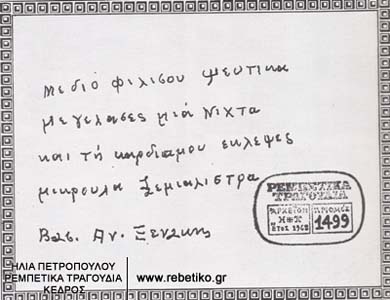 με διό φιλισου ψευτικα
με γελασες μιά Νιχτα
και τή καρδιαμου εκλεψες
μικρουλα ξεμιαλιστρα
Βας. Αν.
ΡΕΜΠΕΤΙΚΑ
ΤΡΑΓΟΥΔΙΑ
ΑΡΧΕΙΟΝ
ΗΠ
ΕΤΟΣ 1968
ΑΡΙΘΜΟΣ
1499
ΗΛΙΑ ΠΕΤΡΟΠΟΥΛΟΥ
ΡΕΜΠΕΤΙΚΑ ΤΡΑΓΟΥΔΙΑ
ΚΕΔΡΟΣ
www.rebetiko.gr